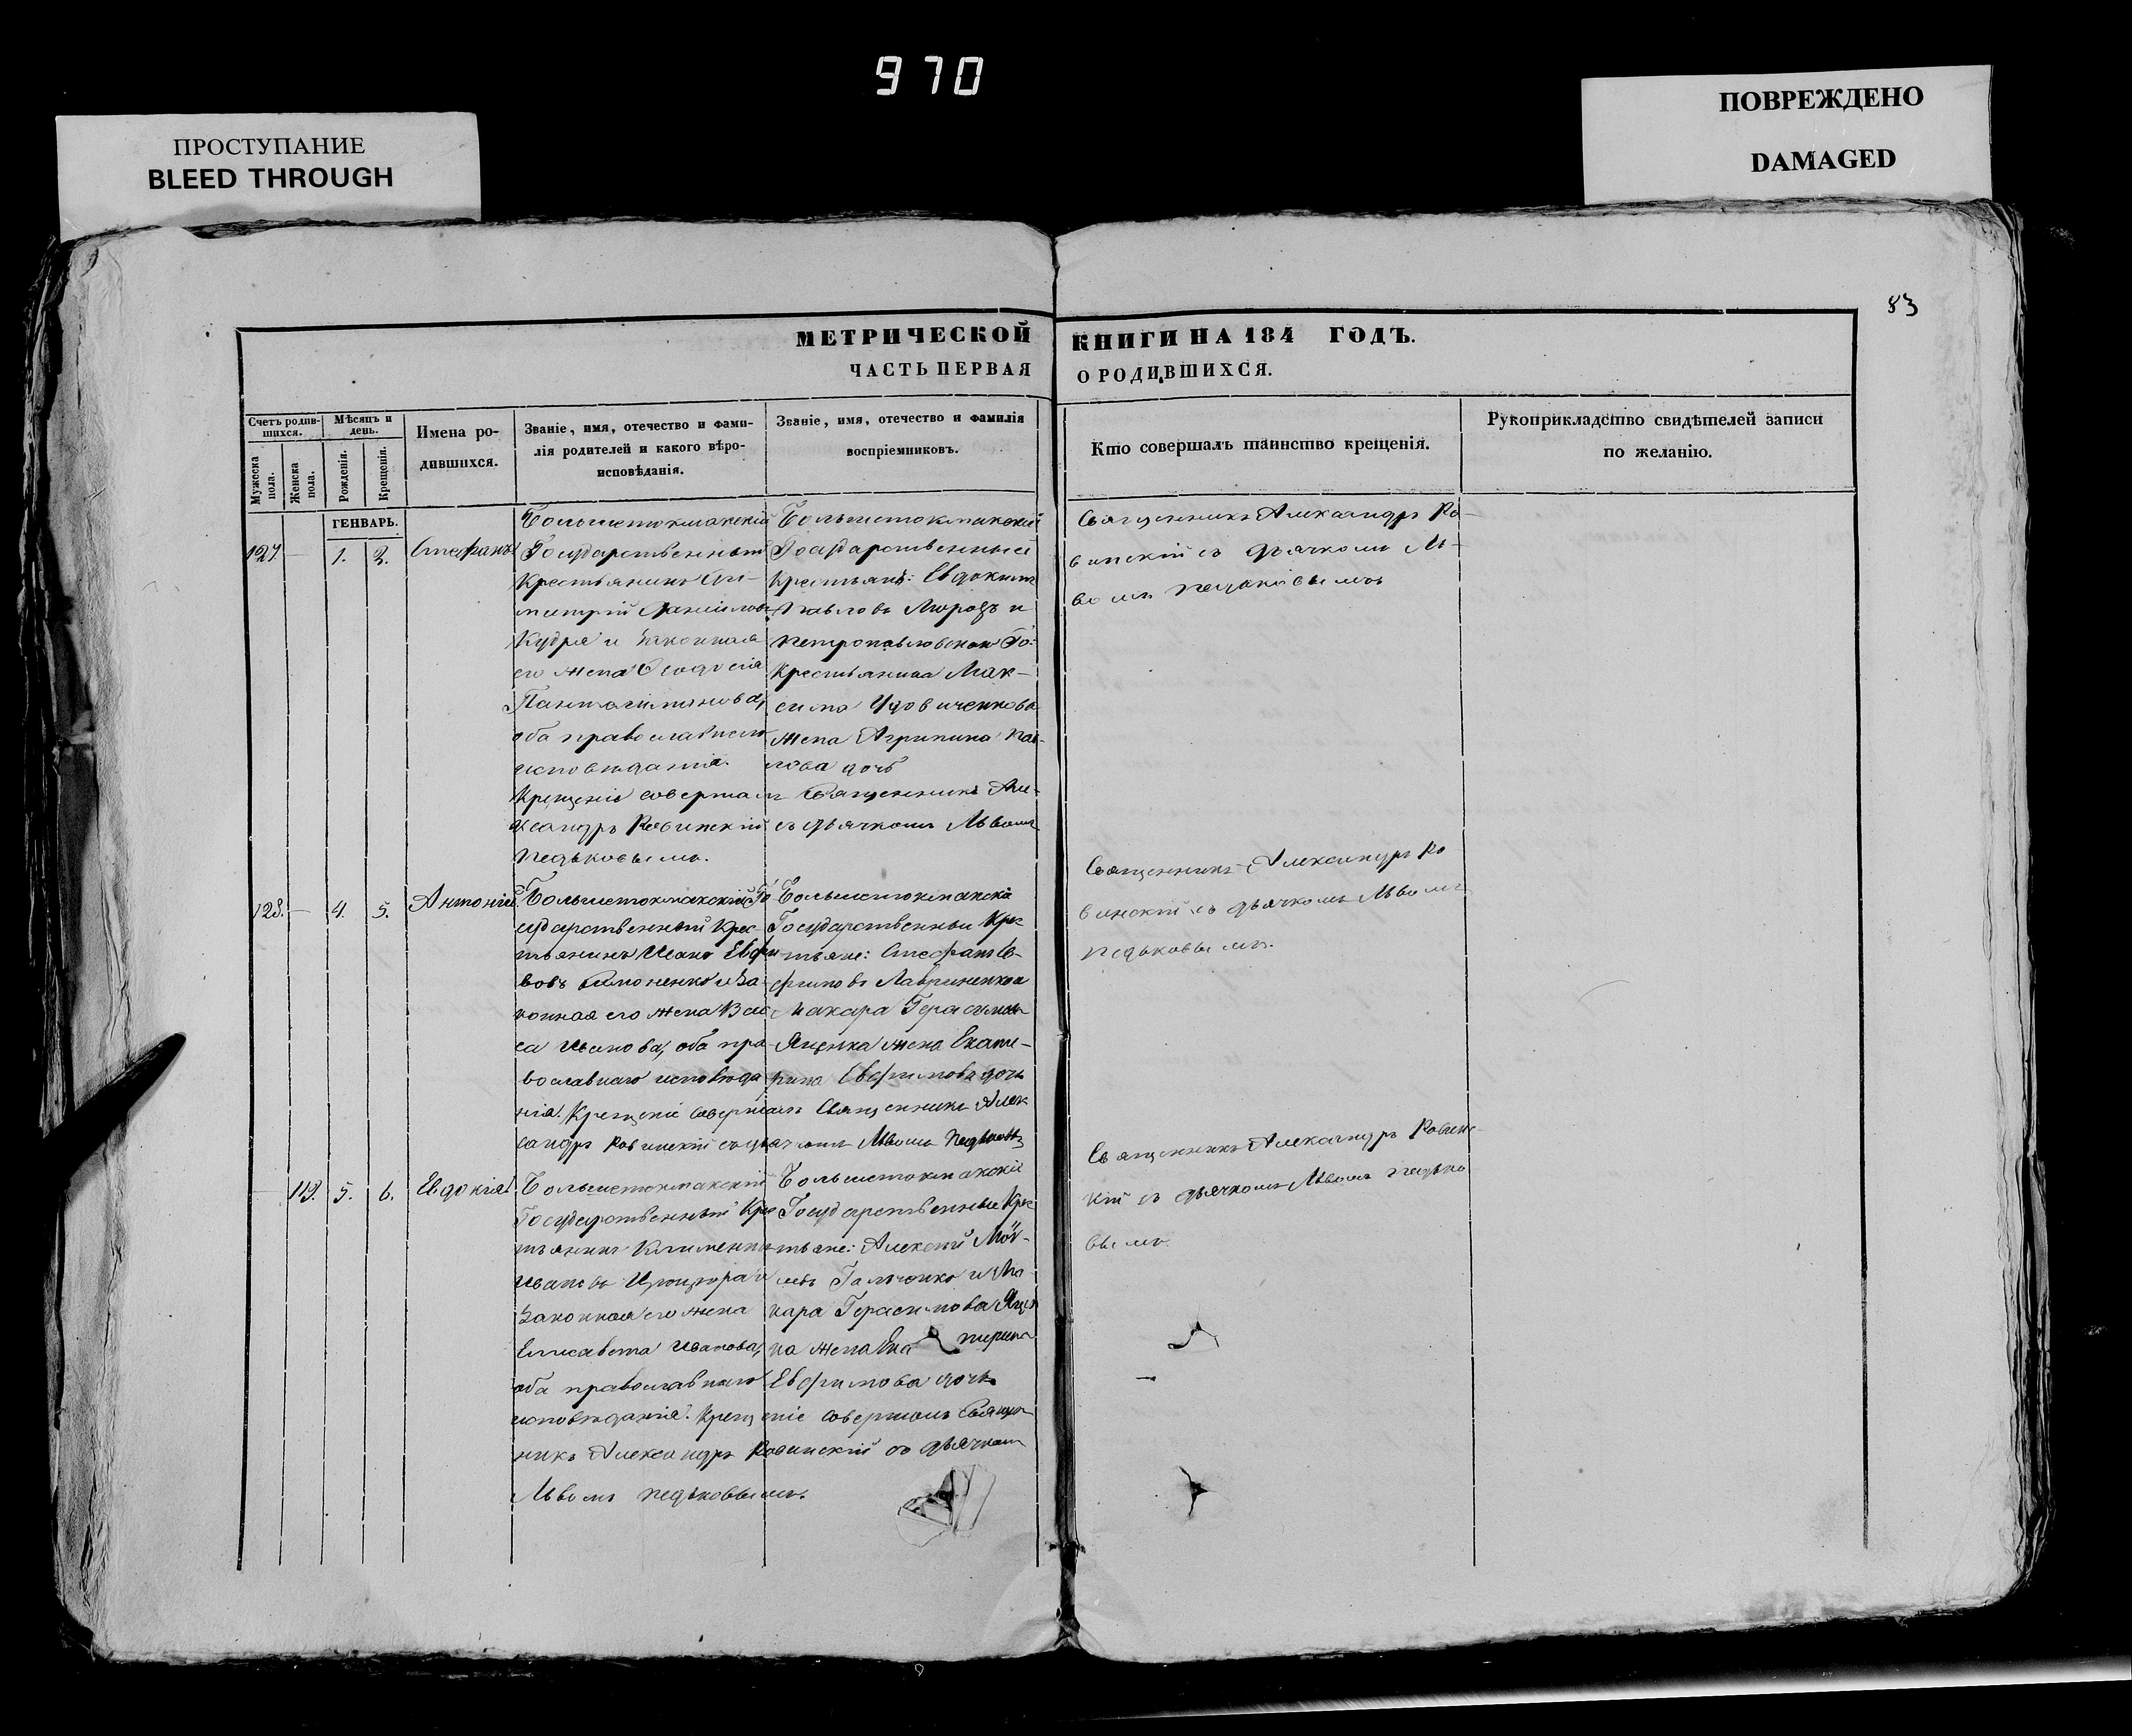 970
ПРОСТУПАНИЕ
BLEED THROUGH
ПОВРЕЖДЕНО
DAMAGED
83
МЕТРИЧЕСКОЙ КНИГИ НА 184 ГОДЪ.
ЧАСТЬ ПЕРВАЯ О РОДИВШИХСЯ.
Счетъ родив-
шихся.
Мужеска пола.
Женска пола.
Мѣсяцъ и
день.
Рожденія.
Крещенія.
Имена ро-
дившихся.
Званіе, имя, отечество и фами-
лія родителей и какого вѣро-
исповѣданія.
Званіе, имя, отечество и фамилія
воспріемниковъ.
Кто совершалъ таинство крещенія.
Рукоприкладство свидѣтелей записи
по желанію.
ГЕНВАРЬ.
127 — 1. 2. Стефанъ
Большетокмакскій
Государственный
Крестьянинъ
Кудря и законная
его жена
оба православнаго
исповѣданія.
Большетокмакскіе
Государственные
Крестьяне: Евдокимъ
Павловъ Морозъ и
Крестьянина Мак-
сима Удовиченкова
жена Агрипина Пав-
лова дочь
Крещеніе совершалъ Священникъ Але-
ксандръ Ровинскій съ дьячкомъ Львомъ
Педьковымъ.
Священникъ Александръ Ро-
винскій съ дьячкомъ Ль-
вомъ Педьковымъ
128. — 4. 5. Антоній
Большетокмакскій Го
сударственный Крес-
тьянинъ Иванъ
вовъ Симоненко и за-
конная его жена Вас
са Иванова, оба пра-
вославнаго исповѣда
нія. Крещеніе совершалъ Священникъ Алек
сандръ Ровинскій съ дьячкомъ Львомъ
Большетокмакскіе
Государственные Крес
тьяне: Стефанъ Ев-
фимовъ Лавриненко и
Макара Герасимова
Яценка жена Екате-
рина Евфимова дочь
Священникъ Александръ Ро
винскій съ дьячкомъ Львомъ
Педьковымъ.
— 119. 5. 6. Евдокія
Большетокмакскій
Государственный Крес
тьянинъ Климентъ
Ивановъ
законная его жена
Елисавета Иванова,
оба православнаго
исповѣданія. Крещеніе совершалъ Священ
никъ Александръ Ровинскій съ дьячкомъ
Львомъ Педьковымъ.
Большетокмакскіе
Государственные Крес
тьяне: Алексій
Гальченко и Ма
кара Герасимова Яцен
ка жена Екатерина
Евфимова дочь
Священникъ Александръ Ровинс-
кій съ дьячкомъ Львомъ Педько
вымъ.